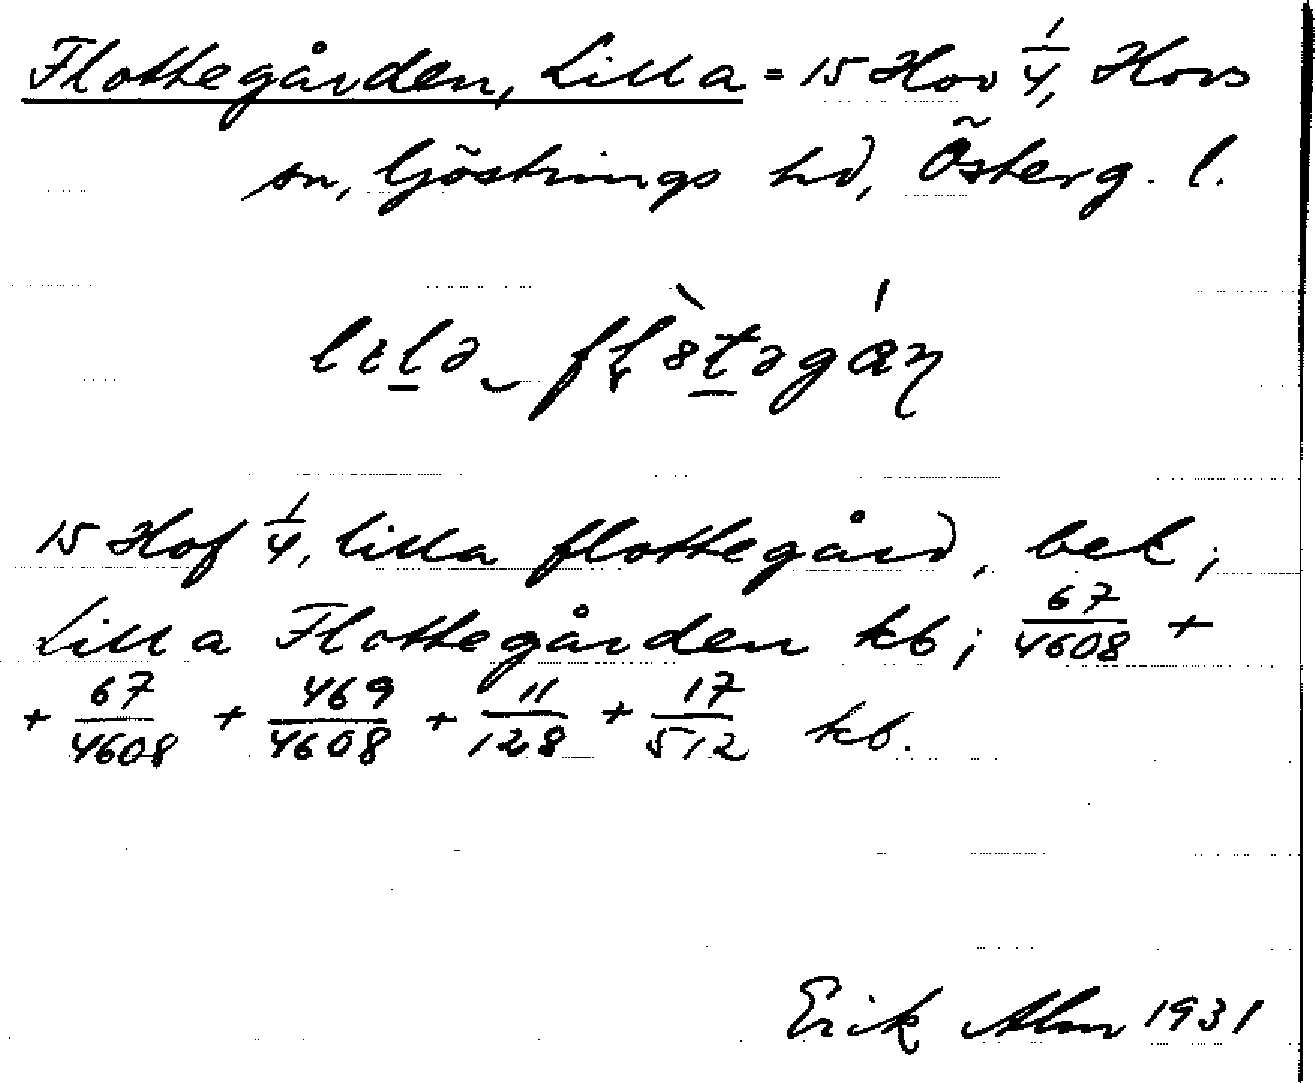 Flottegården, Lilla = 15 Hov 1/4, Hovs
sn, Göstrings hd, Österg. l.
15 Hof 1/4, lilla flottegård, bek;
Lilla Flottegården kb; 67/4608 +
+ 67/4608 + 469/4608 + 11/128 + 17/512 kb.
Erik Alm 1931